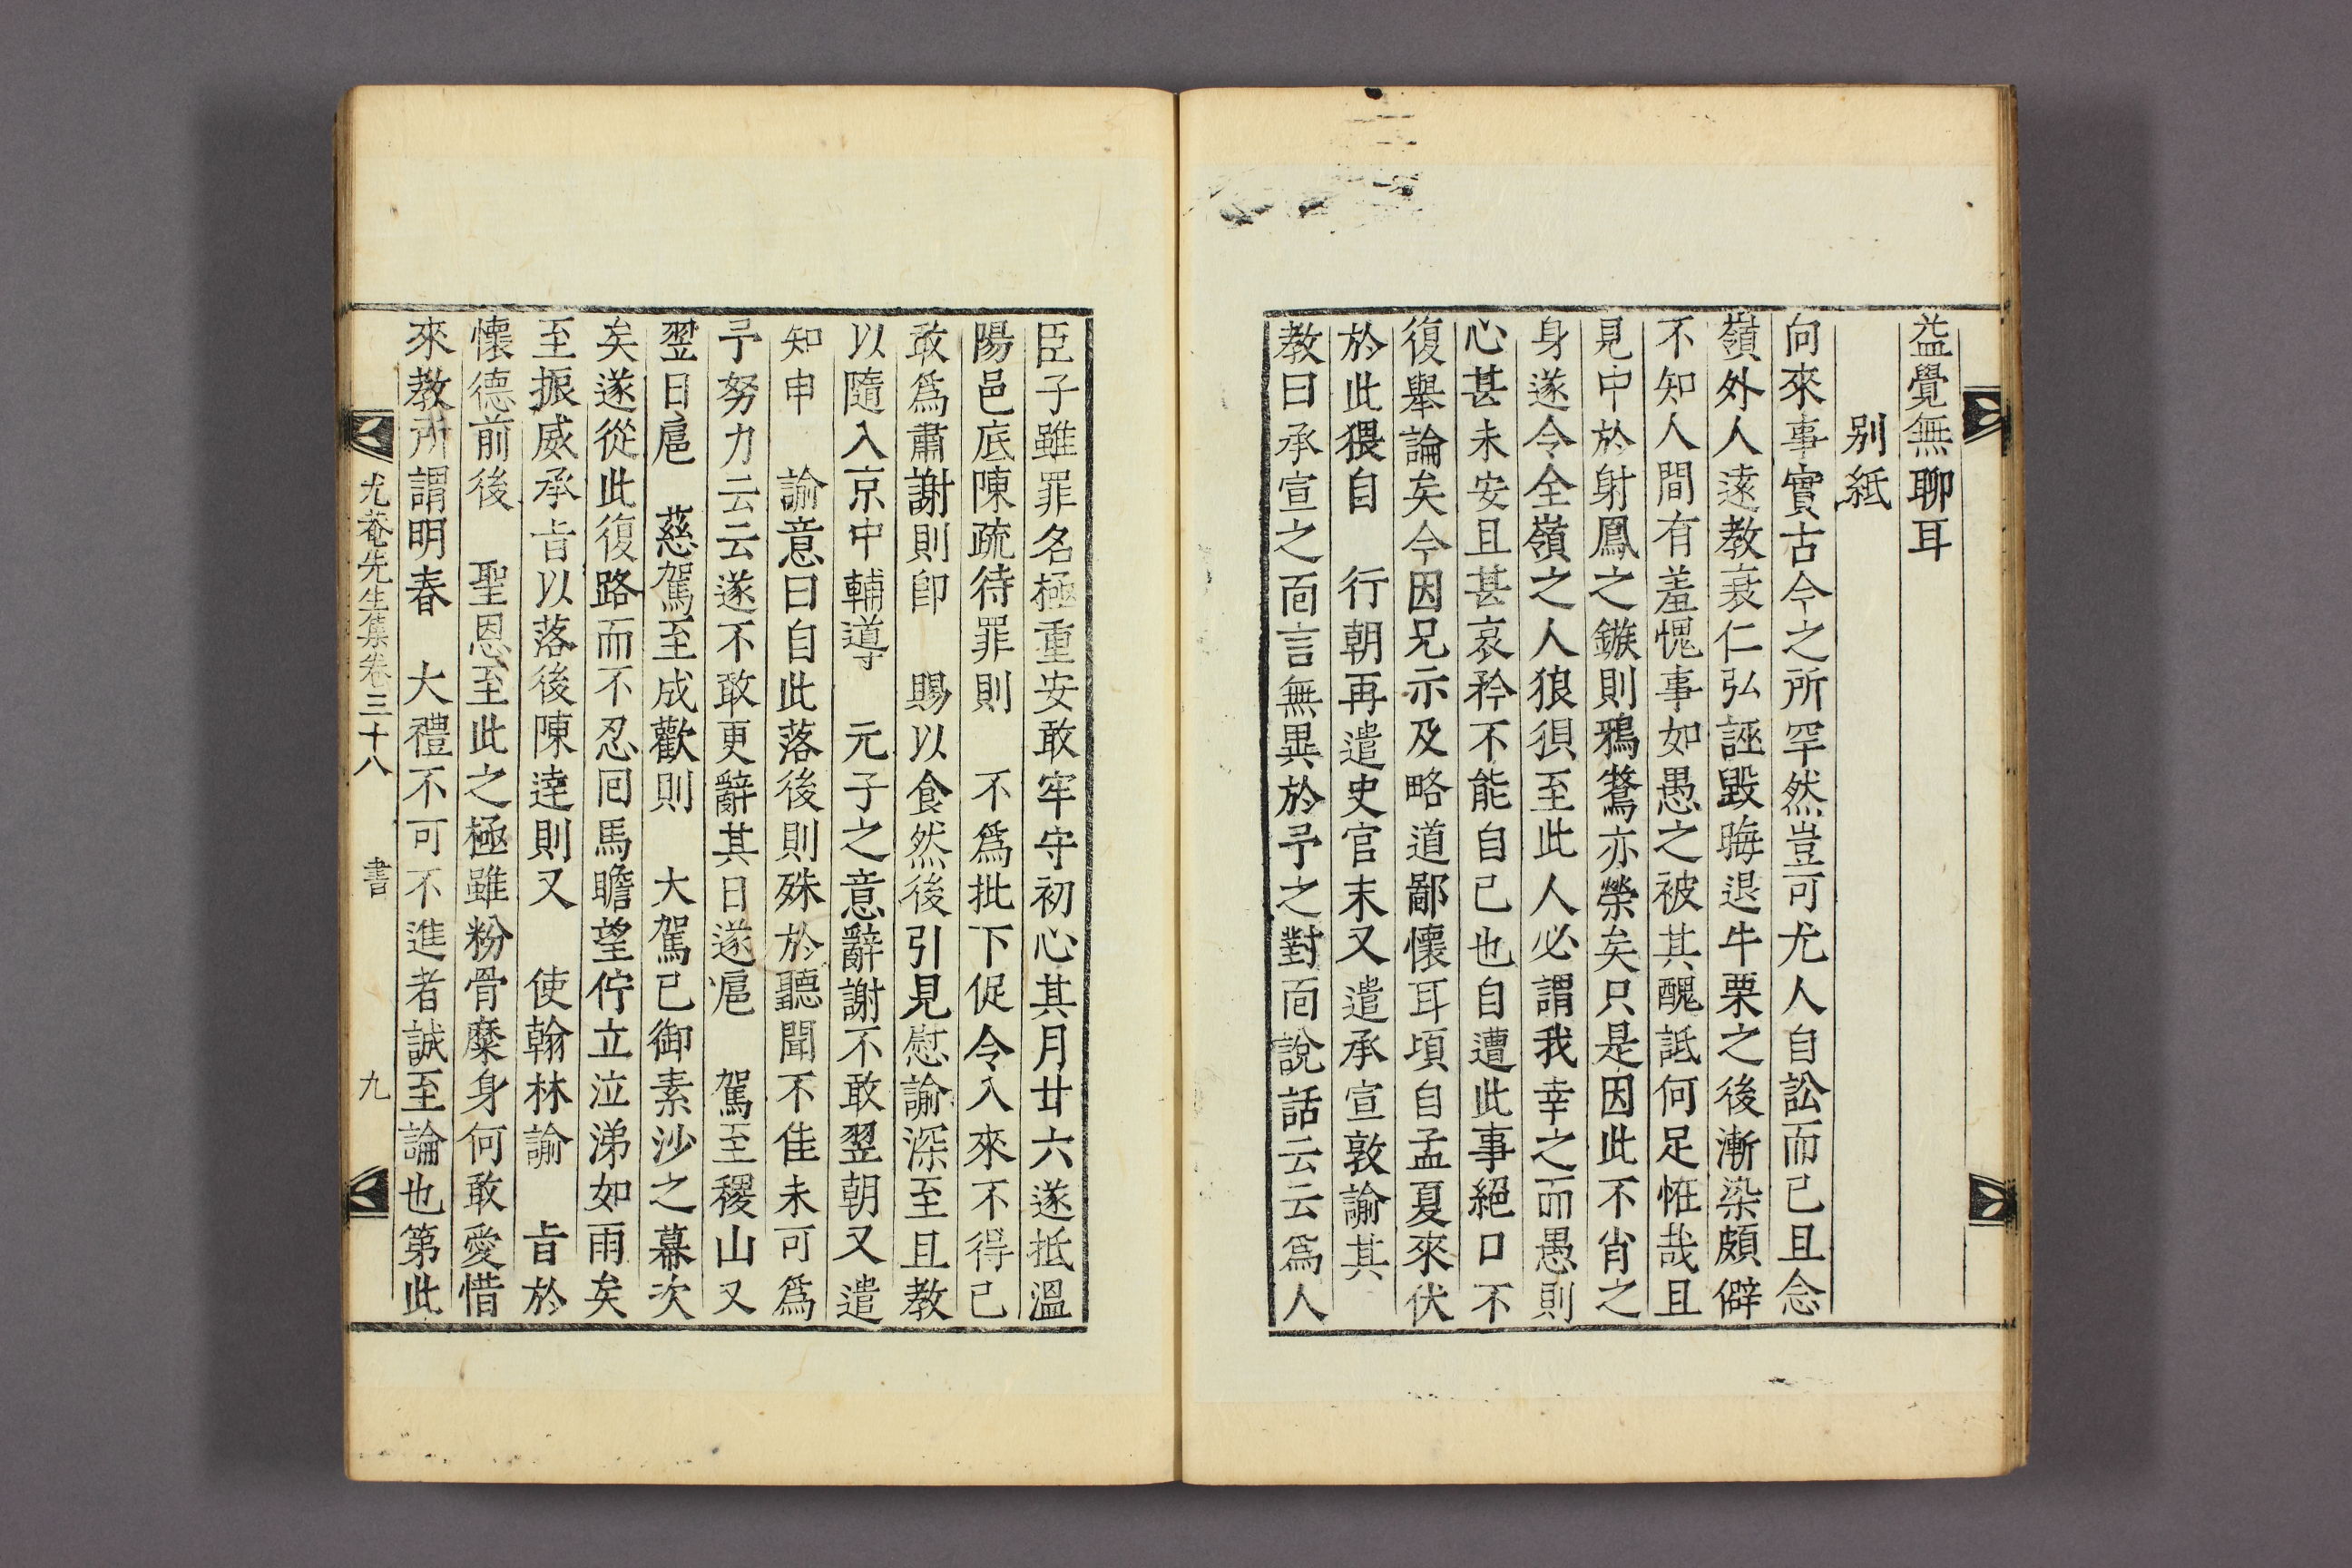 益覺無聊耳
別紙
向來事實古今之所罕然豈可尤人自訟而已且念
嶺外人遠教衰仁弘誣毀晦退牛栗之後漸染頗僻
不知人間有羞愧事如愚之被其醜詆何足恠哉且
見中於射鳳之鏃則鴉鶖亦榮矣只是因此不肖之
身遂令全嶺之人狼狽至此人必謂我幸之而愚則
心甚未安且甚哀矜不能自已也自遭此事絕口不
復舉論矣今因兄示及略道鄙懷耳頃自孟夏來伏
於此猥自 行朝再遣史官末又遣承宣敦諭其
教曰承宣之面言無異於予之對面說話云云爲人
臣子雖罪名極重安敢牢守初心其月廿六遂抵溫
陽邑底陳疏待罪則 不爲批下促令入來不得已
敢爲肅謝則卽 賜以食然後引見慰諭深至且教
以隨入京中輔導 元子之意辭謝不敢翌朝又遣
知申 諭意曰自此落後則殊於聽聞不佳未可爲
予努力云云遂不敢更辭其日遂扈 駕至稷山又
翌日扈 慈駕至成歡則 大駕已御素沙之幕次
矣遂從此復路而不忍回馬瞻望佇立泣涕如雨矣
至振威承旨以落後陳達則又 使翰林諭 旨於
懷德前後 聖恩至此之極雖粉骨糜身何敢愛惜
來教所謂明春 大禮不可不進者誠至論也第此
尤菴先生集卷三十八 書 九